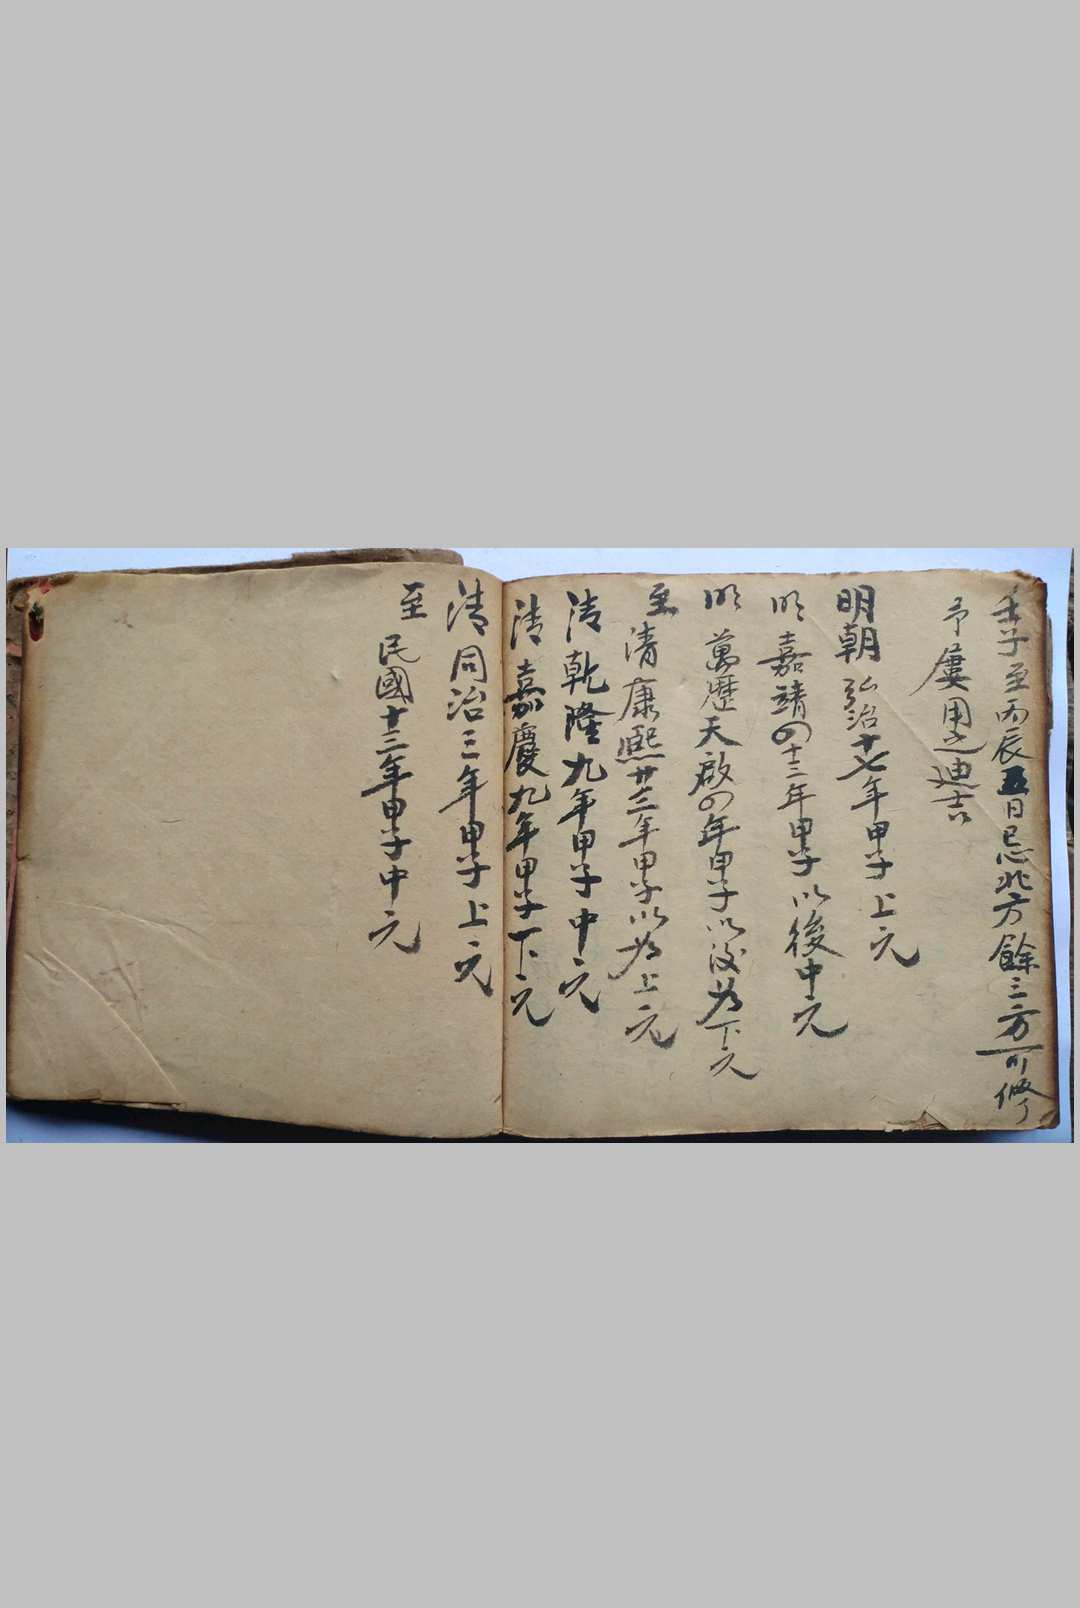 壬子至丙辰五日忌北方餘三方可修
予屢用之迪吉
明朝弘治十七年甲子上元
明嘉靖四十三年甲子以後中元
明萬歷天啟四年甲子以後為下元
至清康熙廿三年甲子以為上元
清乾隆九年甲子中元
清嘉慶九年甲子下元
清同治三年甲子上元
至民國十三年甲子中元